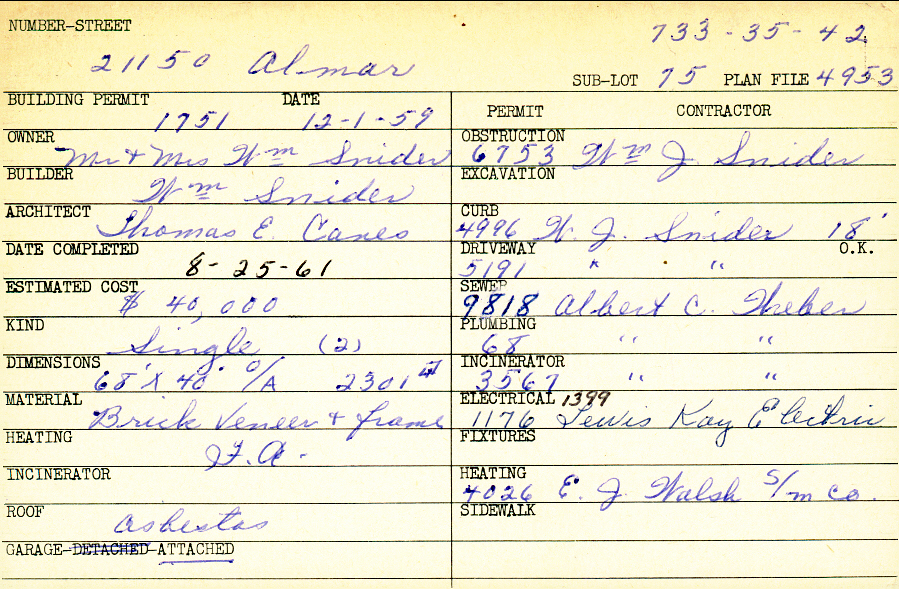 NUMBER-STREET 733-35-42
21150 Almar
SUB-LOT 75 PLAN FILE 4953
BUILDING PERMIT DATE
1751 12-1-59
PERMIT CONTRACTOR
OWNER
Mr & Mrs Wm Snider
OBSTRUCTION
6753 Wm J. Snider
BUILDER
Wm Snider
EXCAVATION
ARCHITECT
Thomas E. Canes
CURB
4996 W. J. Snider 18'
DATE COMPLETED
8-25-61
DRIVEWAY O.K.
5191 " "
ESTIMATED COST
$ 40,000
SEWER
9818 Albert C. Theber
KIND
Single (2)
PLUMBING
68 " "
DIMENSIONS
68' X 40' O/A 2301
INCINERATOR
3567 " "
MATERIAL
Brick Veneer & frame
ELECTRICAL 1399
1176 Lewis Kay Electric
HEATING
F.A.
FIXTURES
INCINERATOR
HEATING
4026 E. J. Walsh S/m Co.
ROOF
asbestos
SIDEWALK
GARAGE-DETACHED-ATTACHED